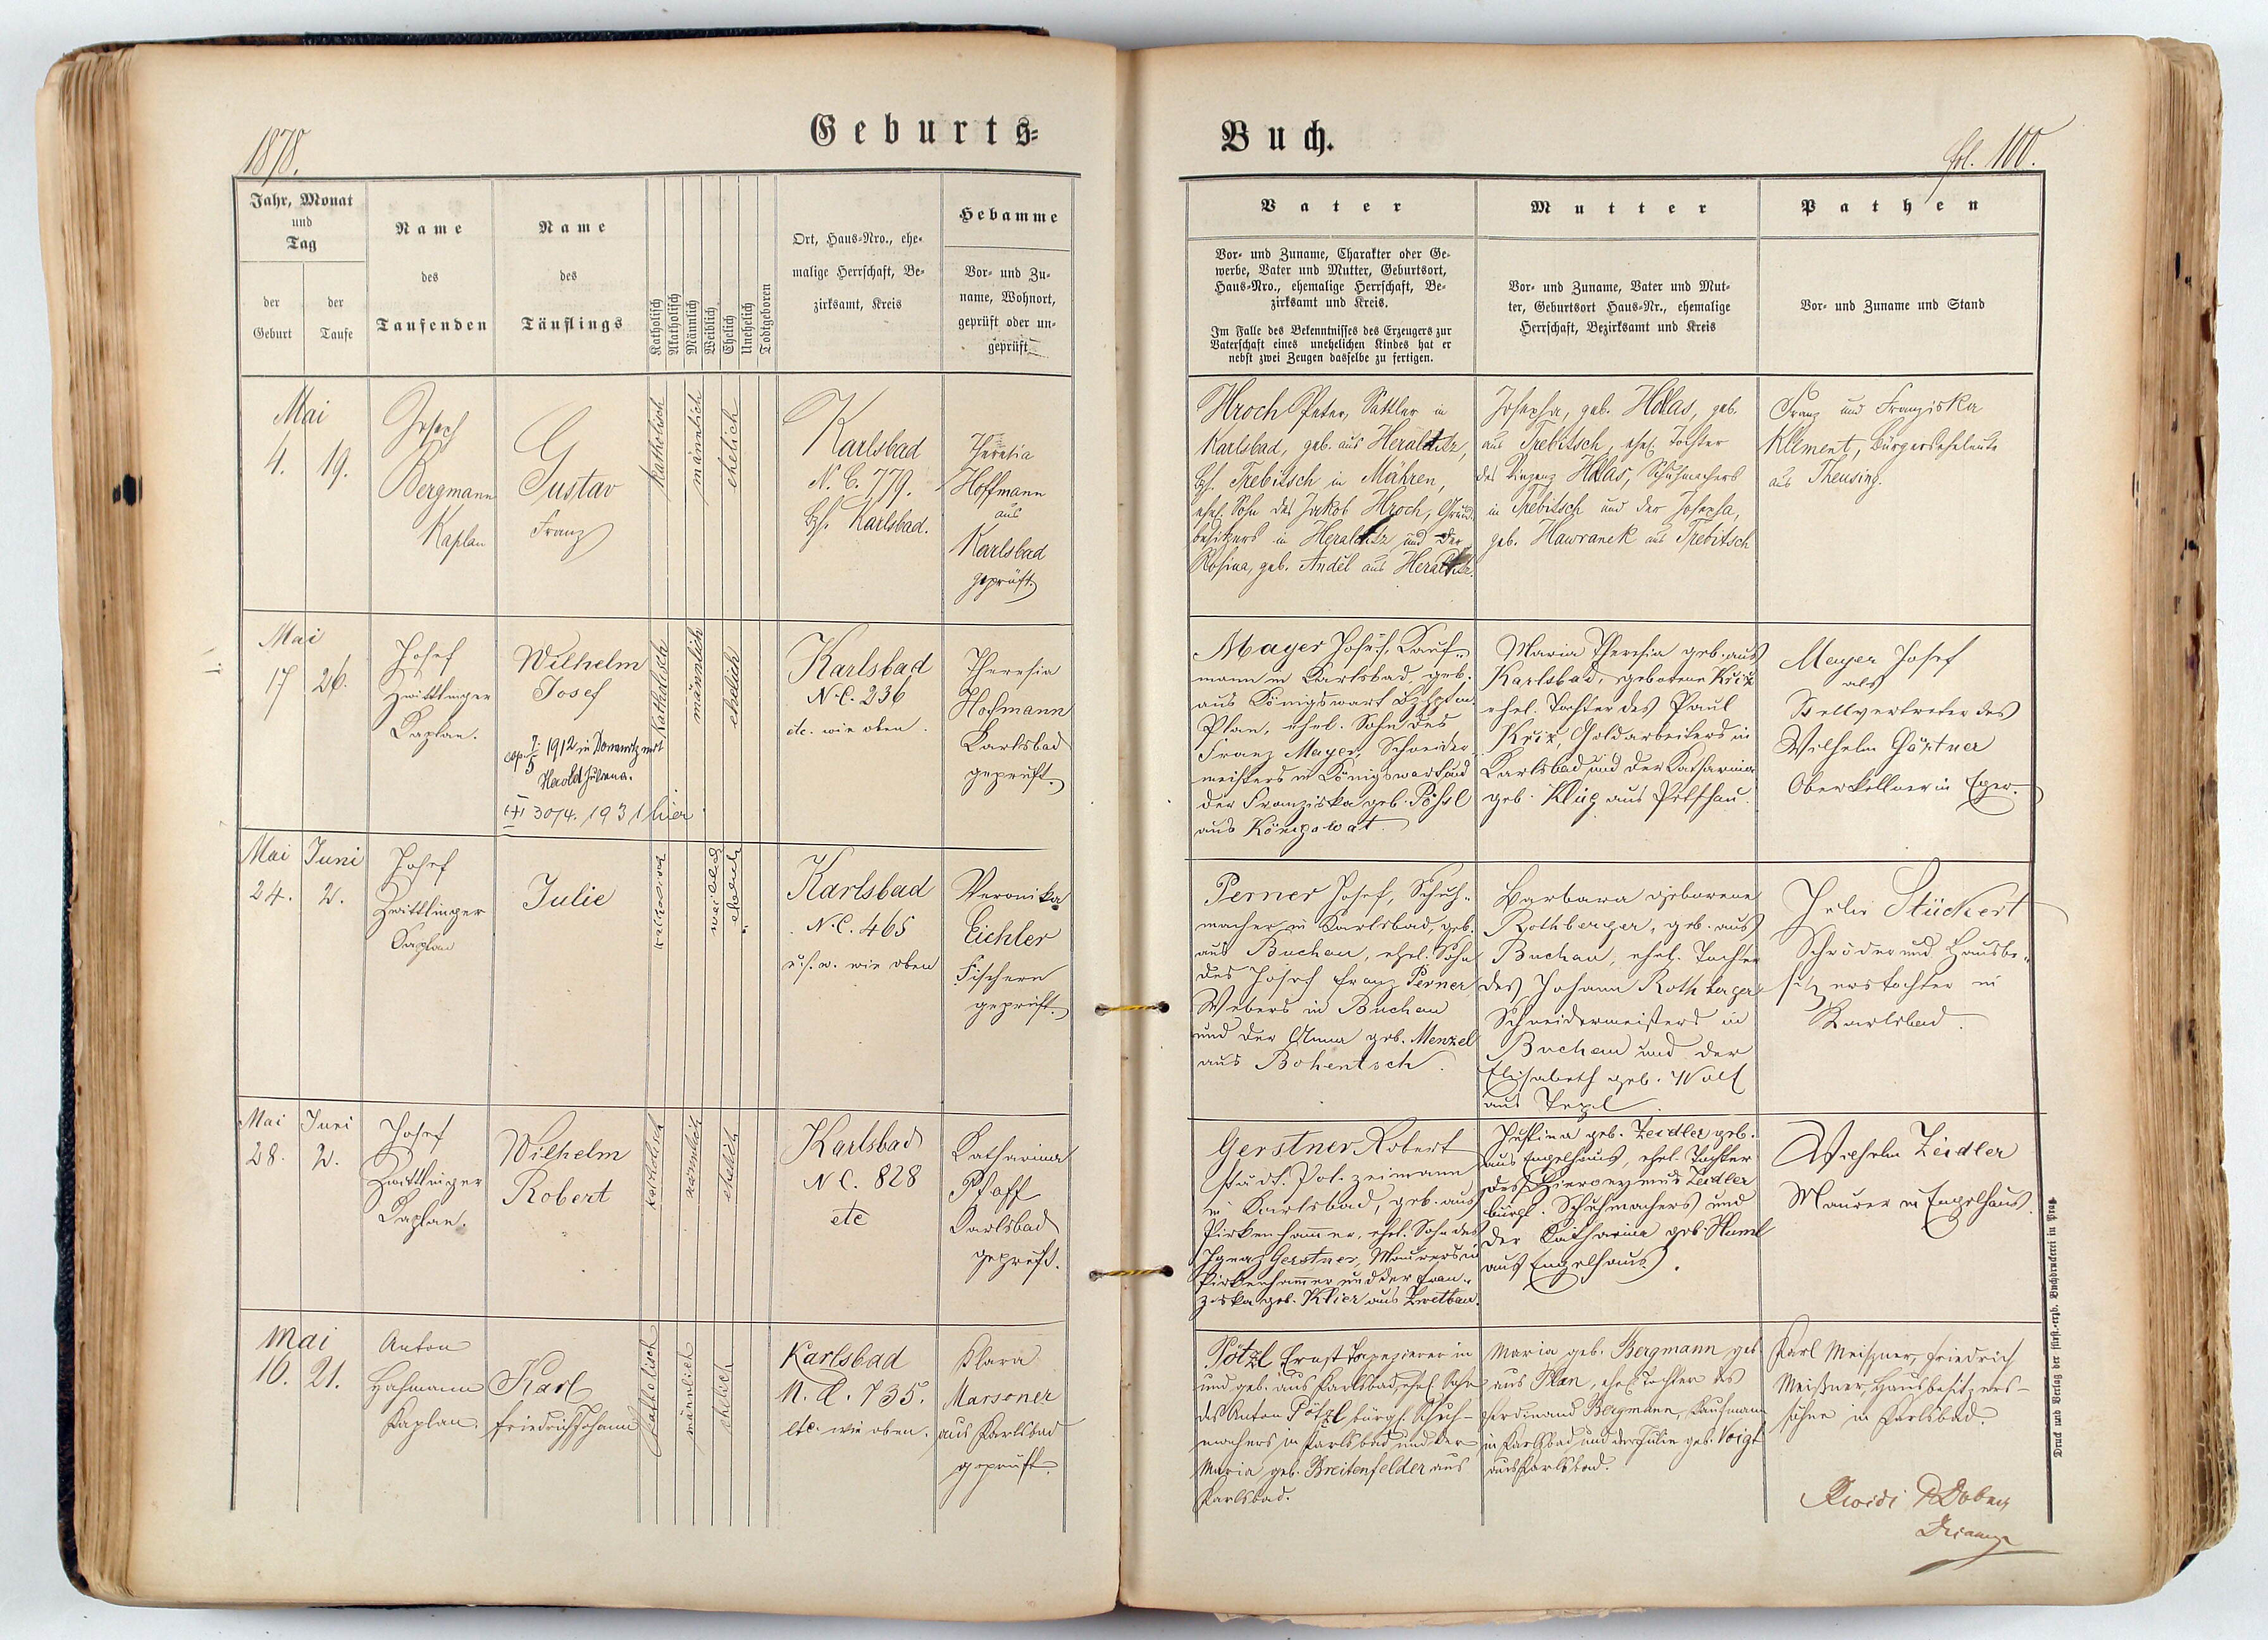 1878.
Geburts=
Jahr, Monat
und
Tag
der
Geburt
der
Taufe
Name
des
Taufenden
Name
des
Täuflings
Katholisch
Akatholisch
Männlich
Weiblich
Ehelich
Unehelich
Todtgeboren
Ort, Haus-Nro., ehe-
malige Herrschaft, Be-
zirksamt, Kreis
Hebamme
Vor- und Zu-
name, Wohnort,
geprüft oder un-
geprüft
Mai
4. 19.
Joseph
Bergmann
Kaplan
Gustav
Franz
katholisch
männlich
ehelich
Karlsbad
N. C. 779.
Bzh. Karlsbad.
Theresia
Hoffmann
aus
Karlsbad
geprüft.
Mai
17 26.
Josef
Zwittlinger
Kaplan.
Wilhelm
Josef
cop. 7/5 1912 in Donawitz mit
Herold Juliena.
30/4. 1931 hier
katholisch
männlich
ehelich
Karlsbad
N.C. 236
etc. wie oben.
Theresia
Hofmann
Karlsbad
geprüft.
Mai Juni
24. 2.
Josef
Zwittlinger
Kaplan
Julie
katholisch
weiblich
ehelich
Karlsbad
N.C. 465
u.s.w. wie oben
Veronika
Eichler
Fischern
geprüft.
Mai Juni
28. 2.
Josef
Zwittlinger
Kaplan.
Wilhelm
Robert
katholisch
männlich
ehelich
Karlsbad
N C. 828
etc
Katharina
Pfaff
Karlsbad
geprüft.
Mai
16. 21.
Anton
Hahmann
Kaplan.
Karl
Friedrich Johann
katholisch
männlich
ehelich
Karlsbad
N. C. 735.
etc. wie oben.
Klara
Marsoner
aus Karlsbad
geprüft.
Buch.
fol. 100.
Vater
Vor- und Zuname, Charakter oder Ge-
werbe, Vater und Mutter, Geburtsort,
Haus-Nro., ehemalige Herrschaft, Be-
zirksamt und Kreis.
Im Falle des Bekenntnisses des Erzeugers zur
Vaterschaft eines unehelichen Kindes hat er
nebst zwei Zeugen dasselbe zu fertigen.
Mutter
Vor- und Zuname, Vater und Mut-
ter, Geburtsort Haus-Nr., ehemalige
Herrschaft, Bezirksamt und Kreis
Pathen
Vor- und Zuname und Stand
Hroch Peter, Sattler in
Karlsbad, geb. aus Heraltitz,
Bzh. Trebitsch in Mähren,
ehel. Sohn des Jakob Hroch, Grund-
besitzers in Heraltitz und der
Rosina, geb. Anděl aus Heraltitz.
Josepha, geb. Holas, geb.
aus Trebitsch, ehel. Tochter
des Vinzenz Holas, Schuhmachers
in Trebitsch und der Josepha,
geb. Hawranek aus Trebitsch
Franz und Franziska
Klement, Bürgerseheleute
aus Theusing.
Mayer Josef, Kauf-
mann in Karlsbad, geb.
aus Königswart Bzhptm.
Plan, ehel. Sohn des
Franz Mayer, Schneider-
meisters in Königswart und
der Franziska geb. Pöhsl
aus Königswat.
Maria Theresia geb. aus
Karlsbad, geborene Kriz
ehel. Tochter des Paul
Kriz, Goldarbeiters in
Karlsbad und der Katharina
geb. Klug aus Petschau.
Mayer Josef
als
Stellvertreter des
Wilhelm Gärtner
Oberkellner in Eger.
Perner Josef, Schuh-
macher in Karlsbad, geb.
aus Buchau, ehel. Sohn
des Josef Franz Perner
Webers in Buchau
und der Anna geb. Menzel
aus Bohentsch.
Barbara geborene
Rothberger, geb. aus
Buchau, ehel. Tochter
des Johann Rothberger
Schneidermeisters in
Buchau und der
Elisabeth geb. Wolf
aus Tepl.
Julie Stückert
Schröder und Hausbe-
sitzerstochter in
Karlsbad.
Gerstner Robert
städt. Polizeimann
in Karlsbad, geb. aus
Pirkenhammer, ehel. Sohn des
Ignaz Gerstner, Maurers in
Pirkenhammer und der Fran-
ziska geb. Klier aus Zwetbau.
Justina geb. Zeidler geb.
aus Engelhaus, ehel. Tochter
des Hieronymus Zeidler
bürgl. Schuhmachers und
der Katharina geb. Haml
aus Engelhaus.
Wilhelm Zeidler
Maurer in Engelhaus.
Pötzl Ernst Tapezierer in
und geb. aus Karlsbad, ehel. Sohn
des Anton Pötzl bürgl. Schuh-
machers in Karlsbad und der
Maria geb. Breitenfelder aus
Karlsbad.
Maria geb. Bergmann geb.
aus Plan, ehel. Tochter des
Ferdinand Bergmann, Kaufmann
in Karlsbad und der Julie geb. Voigt
aus Karlsbad.
Karl Meißner, Friedrich
Meißner, Hausbesitzers-
söhne in Karlsbad.
Druck und Verlag der fürst.-erzb. Buchdruckerei in Prag.